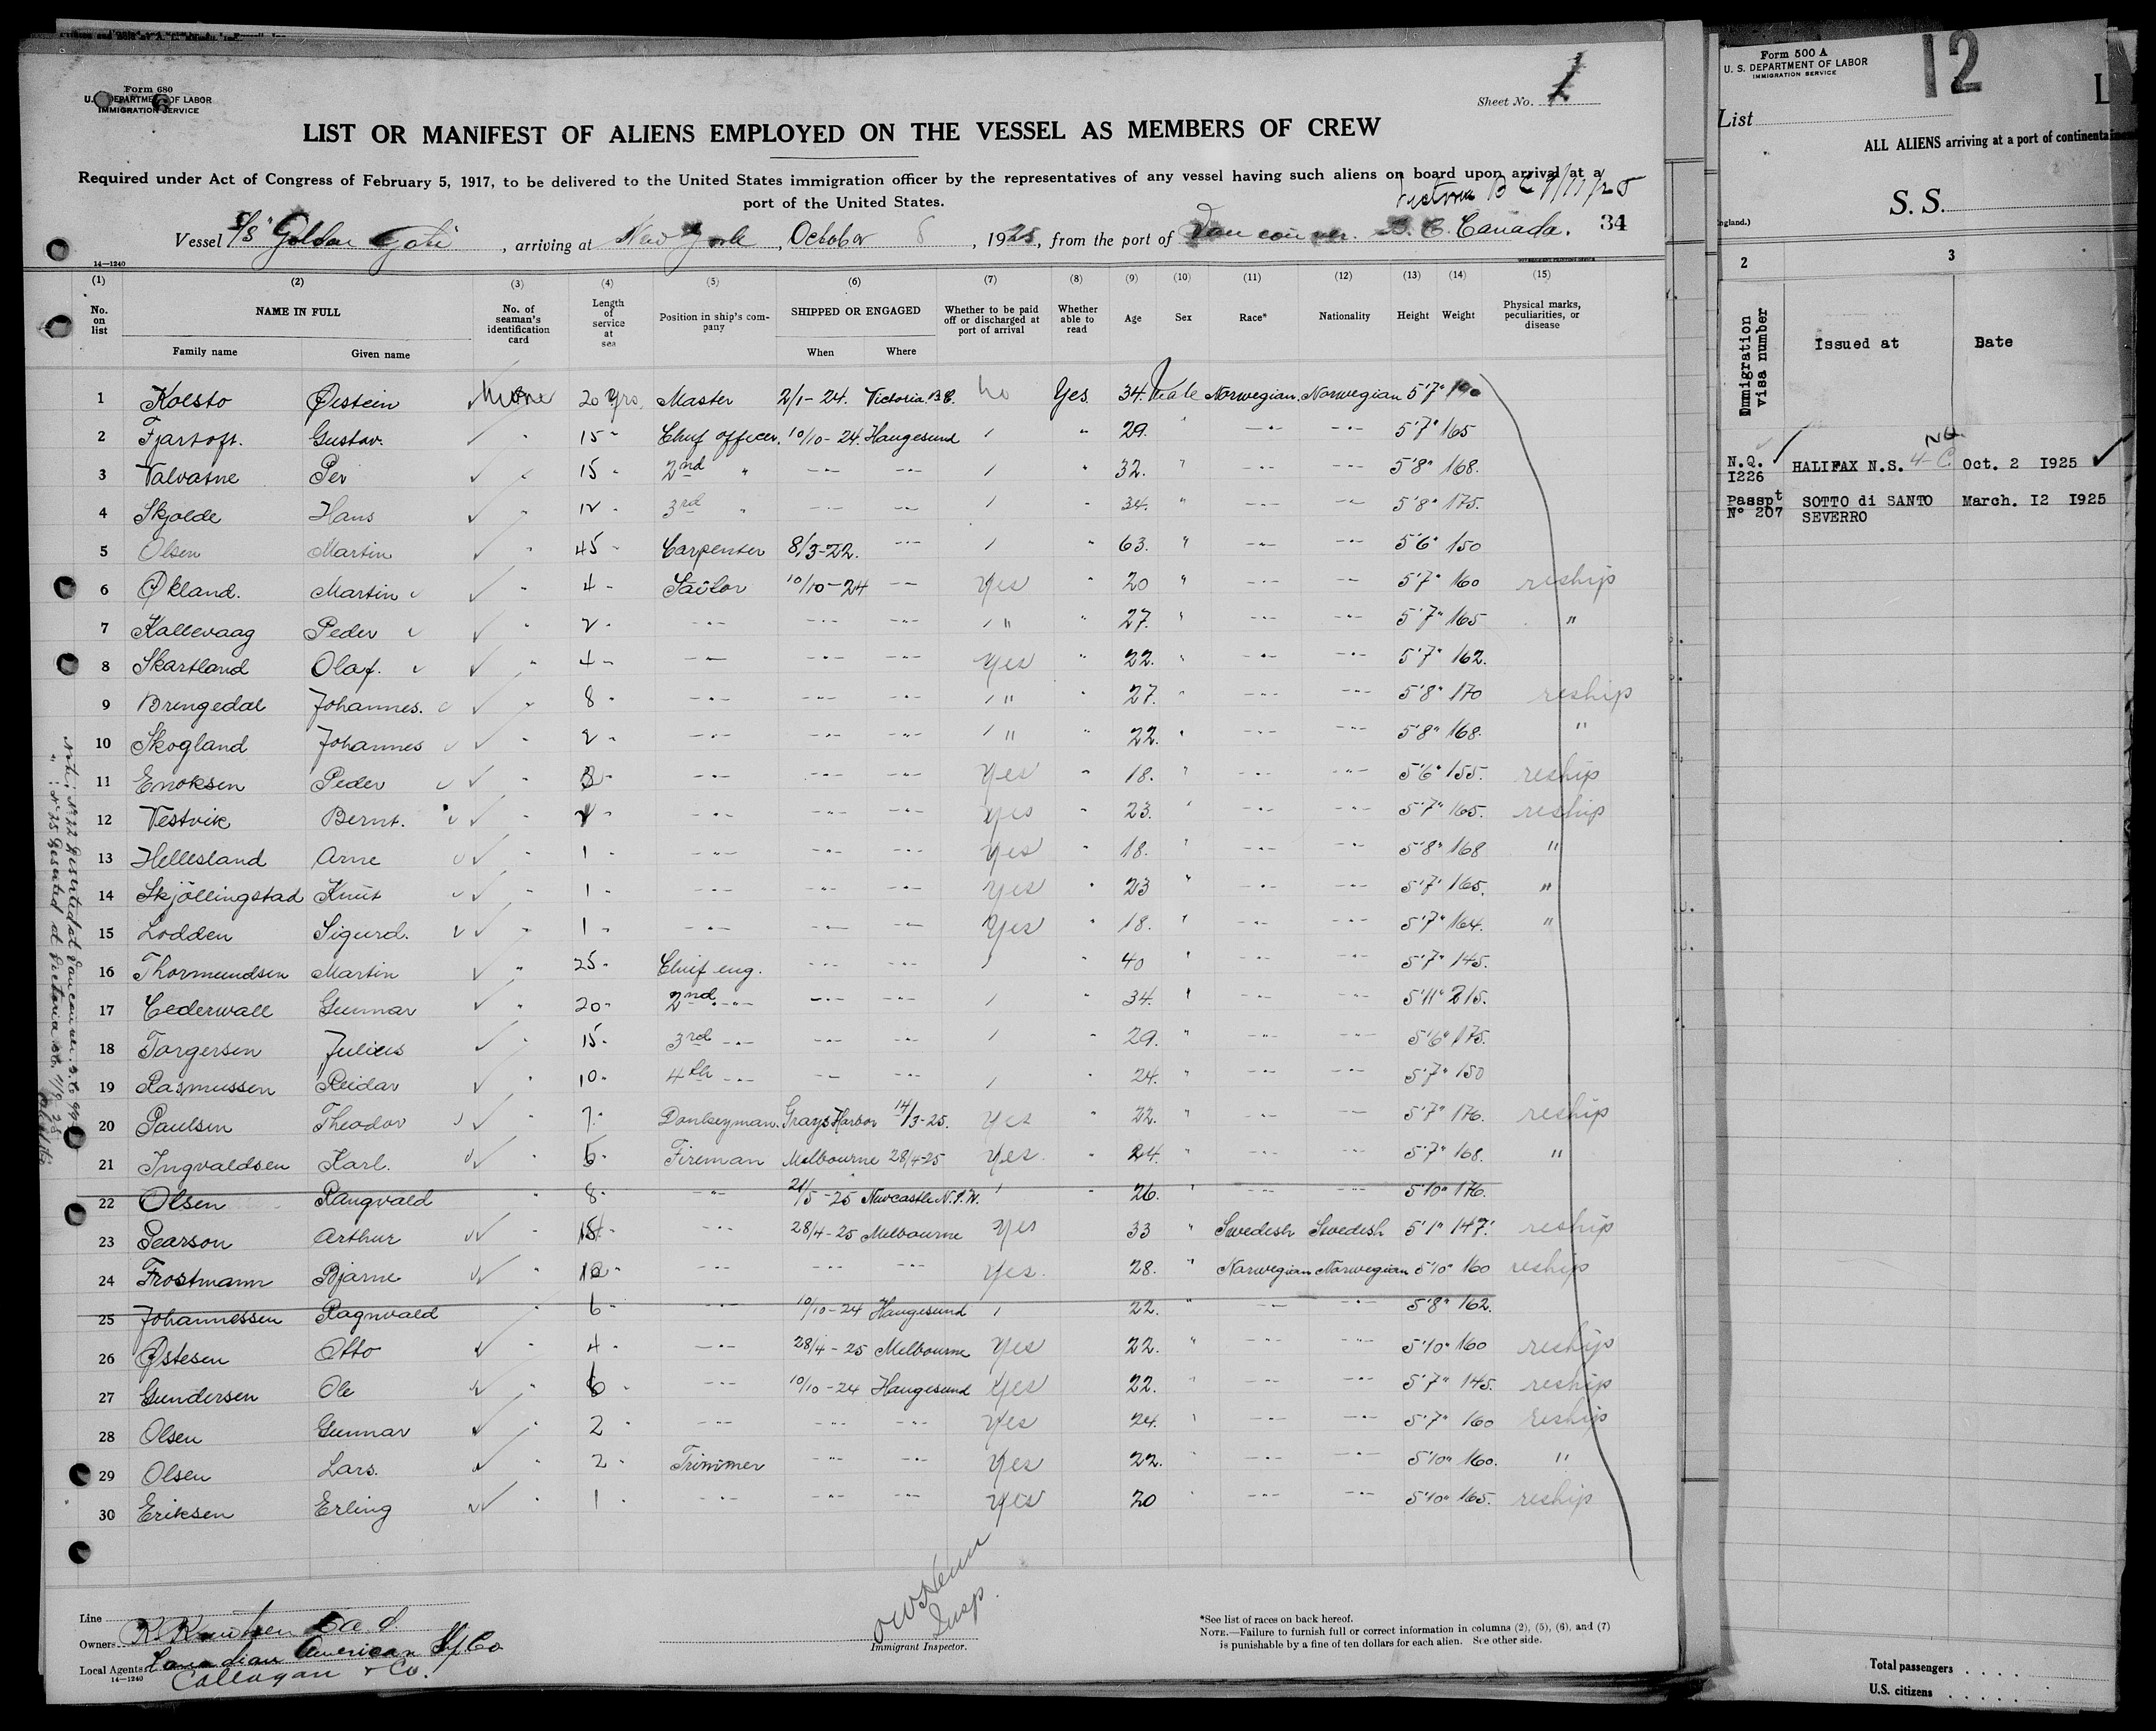 Form 680
U. S. DEPARTMENT OF LABOR
IMMIGRATION SERVICE
Sheet No. 1
LIST OR MANIFEST OF ALIENS EMPLOYED ON THE VESSEL AS MEMBERS OF CREW
Required under Act of Congress of February 5, 1917, to be delivered to the United States immigration officer by the representatives of any vessel having such aliens on board upon arrival at a
port of the United States.
Victoria B C 9/11/25
Vessel S/S "Golden Gate", arriving at New York, October 8, 1925, from the port of Vancouver. B. C. Canada. 34
14—1240
(1) (2) (3) (4) (5) (6) (7) (8) (9) (10) (11) (12) (13) (14) (15)
No. on list NAME IN FULL No. of seaman's identification card Length of service at sea Position in ship's company SHIPPED OR ENGAGED Whether to be paid off or discharged at port of arrival Whether able to read Age Sex Race* Nationality Height Weight Physical marks, peculiarities, or disease
Family name Given name When Where
1 Kolsto Øistein None 20 yrs. Master 2/1-24. Victoria.B.C. no Yes. 34. Male Norwegian. Norwegian 5'7"
2 Fjartoft. Gustav. " 15 " Chief officer. 10/10-24. Haugesund " 29. " -"- -"- 5'7" 165
3 Valvatne Per " 15 " 2nd " -"- -"- " 32. " -"- -"- 5'8" 168.
4 Skjolde Hans " 12 " 3rd " -"- -"- 34. " -"- -"- 5'8" 175.
5 Olsen Martin " 45 " Carpenter 8/3-22. -"- " 63. " -"- -"- 5'6" 150
6 Økland. Martin " 4 " Sailor 10/10-24 -"- Yes " 20 " -"- -"- 5'7" 160 reship
7 Kallevaag Peder " 2 " -"- -"- -"- " " 27. " -"- -"- 5'7" 165 "
8 Skartland Olaf. " 4 " -"- -"- -"- Yes " 22. " -"- -"- 5'7" 162.
9 Brengedal Johannes. " 8 " -"- -"- -"- " " 27. " -"- -"- 5'8" 170 reship
10 Skogland Johannes " 2 " -"- -"- -"- " " 22. " -"- -"- 5'8" 168. "
11 Enoksen Peder " 3 " -"- -"- -"- Yes " 18. " -"- -"- 5'6" 155. reship
12 Vestvik Bernt. " -"- -"- -"- yes " 23. " -"- -"- 5'7" 165. reship
13 Hellesland Arne " 1 " -"- -"- -"- yes " 18. " -"- -"- 5'8" 168 "
14 Skjöllingstad Knut " 1 " -"- -"- -"- yes " 23 " -"- -"- 5'7" 165. "
15 Lodden Sigurd. " 1 " -"- -"- -"- Yes " 18. " -"- -"- 5'7" 164. "
16 Thormundsen Martin " 25 " Chief eng. -"- -"- " 40 " -"- -"- 5'7" 145.
17 Cederwall Gunnar " 20 " 2nd -"- -"- -"- " 34. " -"- -"- 5'11" 215.
18 Torgersen Julius 15 " 3rd -"- -"- -"- " 29. " -"- -"- 5'6" 175.
19 Rasmussen Reidar " 10 " 4th -"- -"- -"- " 24. " -"- -"- 5'7" 150
20 Paulsen Theodor " 7 " Donkeyman. Grays Harbor 14/3-25. yes " 22. " -"- -"- 5'7" 176. reship
21 Ingvaldsen Karl. " 6 " Fireman Melbourne 28/4-25 yes. " 24. " -"- -"- 5'7" 168. "
22 Olsen Rangvald " 8 " -"- 21/5-25 Newcastle N.S.W. " 26. " -"- -"- 5'10" 176.
23 Pearson Arthur " -"- 28/4-25 Melbourne yes 33 " Swedish Swedish 5'1" 147. reship
24 Frostmann Bjarne " -"- -"- -"- yes. 28. " Norwegian Norwegian 5'10" 160 reship
25 Johannessen Ragnvald " 6 " -"- 10/10-24 Haugesund 22. " -"- -"- 5'8" 162.
26 Østesen Otto " 4 " -"- 28/4-25 Melbourne Yes 22. " -"- -"- 5'10" 160 reship
27 Gundersen Ole " 6 " -"- 10/10-24 Haugesund yes 22. " -"- -"- 5'7" 145. reship
28 Olsen Gunnar " 2 " -"- -"- -"- yes 24. " -"- -"- 5'7" 160 reship
29 Olsen Lars. " 2 " Trimmer -"- -"- yes 22. " -"- -"- 5'10" 160. "
30 Eriksen Erling " 1 " -"- -"- -"- yes 20 " -"- -"- 5'10" 165. reship
Note: No 22 Deserted at Vancouver. B.C.
" : No 25 Deserted at Victoria
Line
Owners K. Knutsen
Local Agents Canadian American Co
14—1240
Callagan & Co.
Insp.
Immigrant Inspector.
*See list of races on back hereof.
NOTE.—Failure to furnish full or correct information in columns (2), (5), (6), and (7)
is punishable by a fine of ten dollars for each alien. See other side.
Form 500 A
U. S. DEPARTMENT OF LABOR
IMMIGRATION SERVICE
12
List
ALL ALIENS arriving at a port of continental
S. S.
ngland.)
2 3
Immigration visa number Issued at Date
N.Q. I226 HALIFAX N.S. Oct. 2 I925
Passpt No 207 SOTTO di SANTO SEVERRO March. I2 I925
Total passengers . . . .
U.S. citizens . . . . .